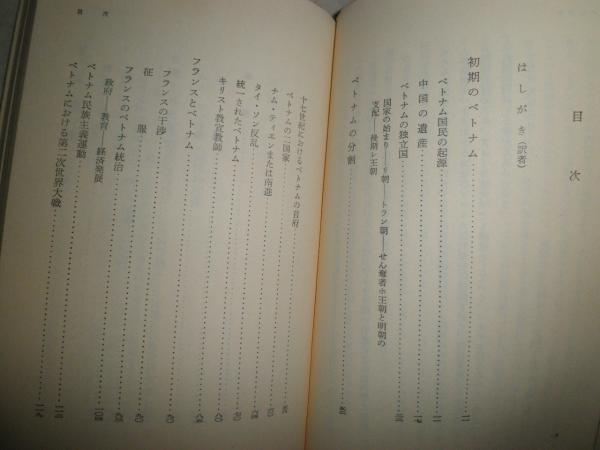 目次
はしがき（訳者）
初期のベトナム……一
ベトナム国民の起源……二
中国の遺産……一七
ベトナムの独立国……三
国家の始まり――リ朝――トラン朝――せん奪者ホ王朝と明朝の
支配――後期レ王朝
ベトナムの分割
目次
十七世紀におけるベトナムの首府
ベトナムの二国家
ナム・ティエンまたは南進
タイ・ソン反乱
統一されたベトナム
キリスト教宣教師
フランスとベトナム
フランスの干渉
征服
フランスのベトナム統治
政府――教育――経済発展
ベトナム民族主義運動
ベトナムにおける第二次世界大戦